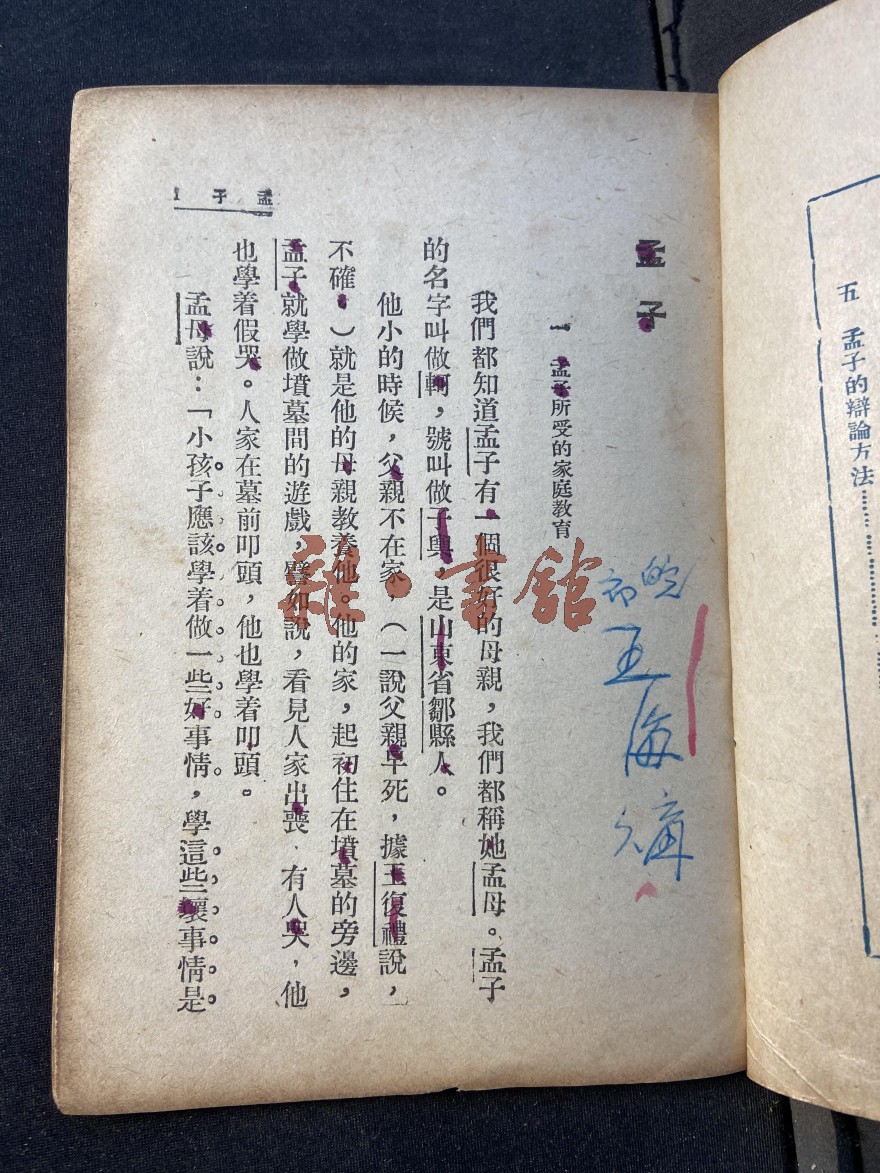 五 孟子的辯論方法
孟子
一 孟子所受的家庭教育
我們都知道孟子有一個很好的母親，我們都稱她孟母。孟子
的名字叫做軻，號叫做子輿，是山東省鄒縣人。
他小的時候，父親不在家，（一說父親早死，據王復禮說，
不確，）就是他的母親教養他。他的家，起初住在墳墓的旁邊，
孟子就學做墳墓間的遊戲，譬如說，看見人家出喪、有人哭，他
也學着假哭。人家在墓前叩頭，他也學着叩頭。
孟母說：「小孩子應該學着做一些好事情，學這些壞事情是
孟子 1
王海
雜·書館